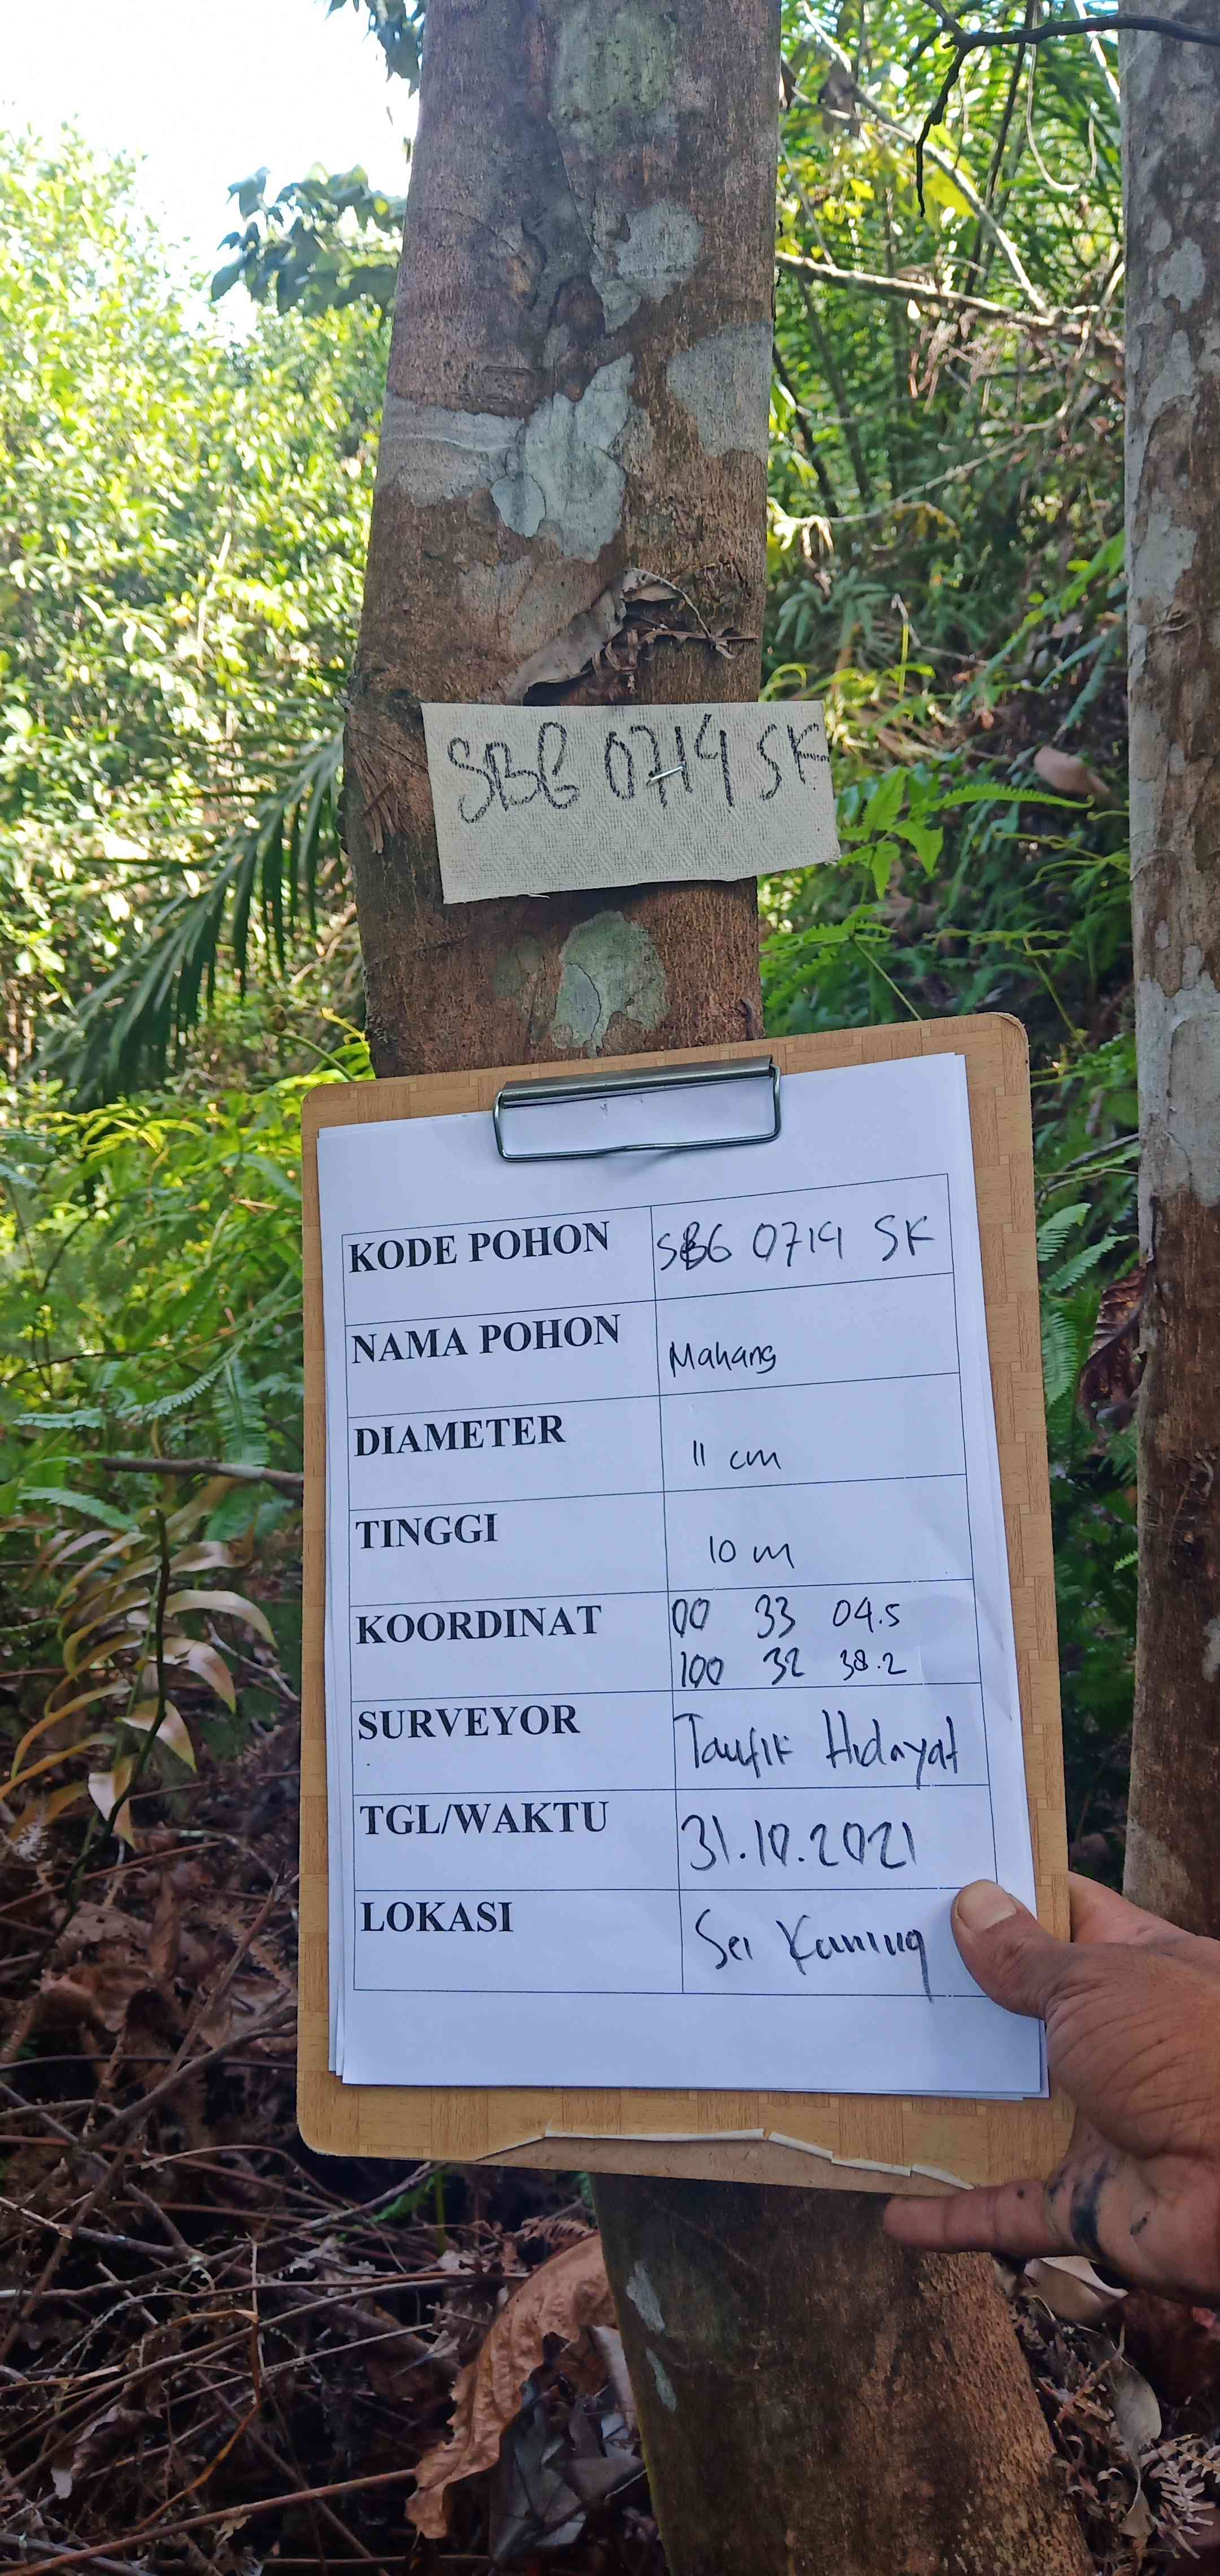 SBG 0714 SK
KODE POHON SBG 0714 SK
NAMA POHON Mahang
DIAMETER 11 cm
TINGGI 10 m
KOORDINAT 00 33 04.5
100 32 38.2
SURVEYOR Taufik Hidayat
TGL/WAKTU 31.10.2021
LOKASI Sei Kuning